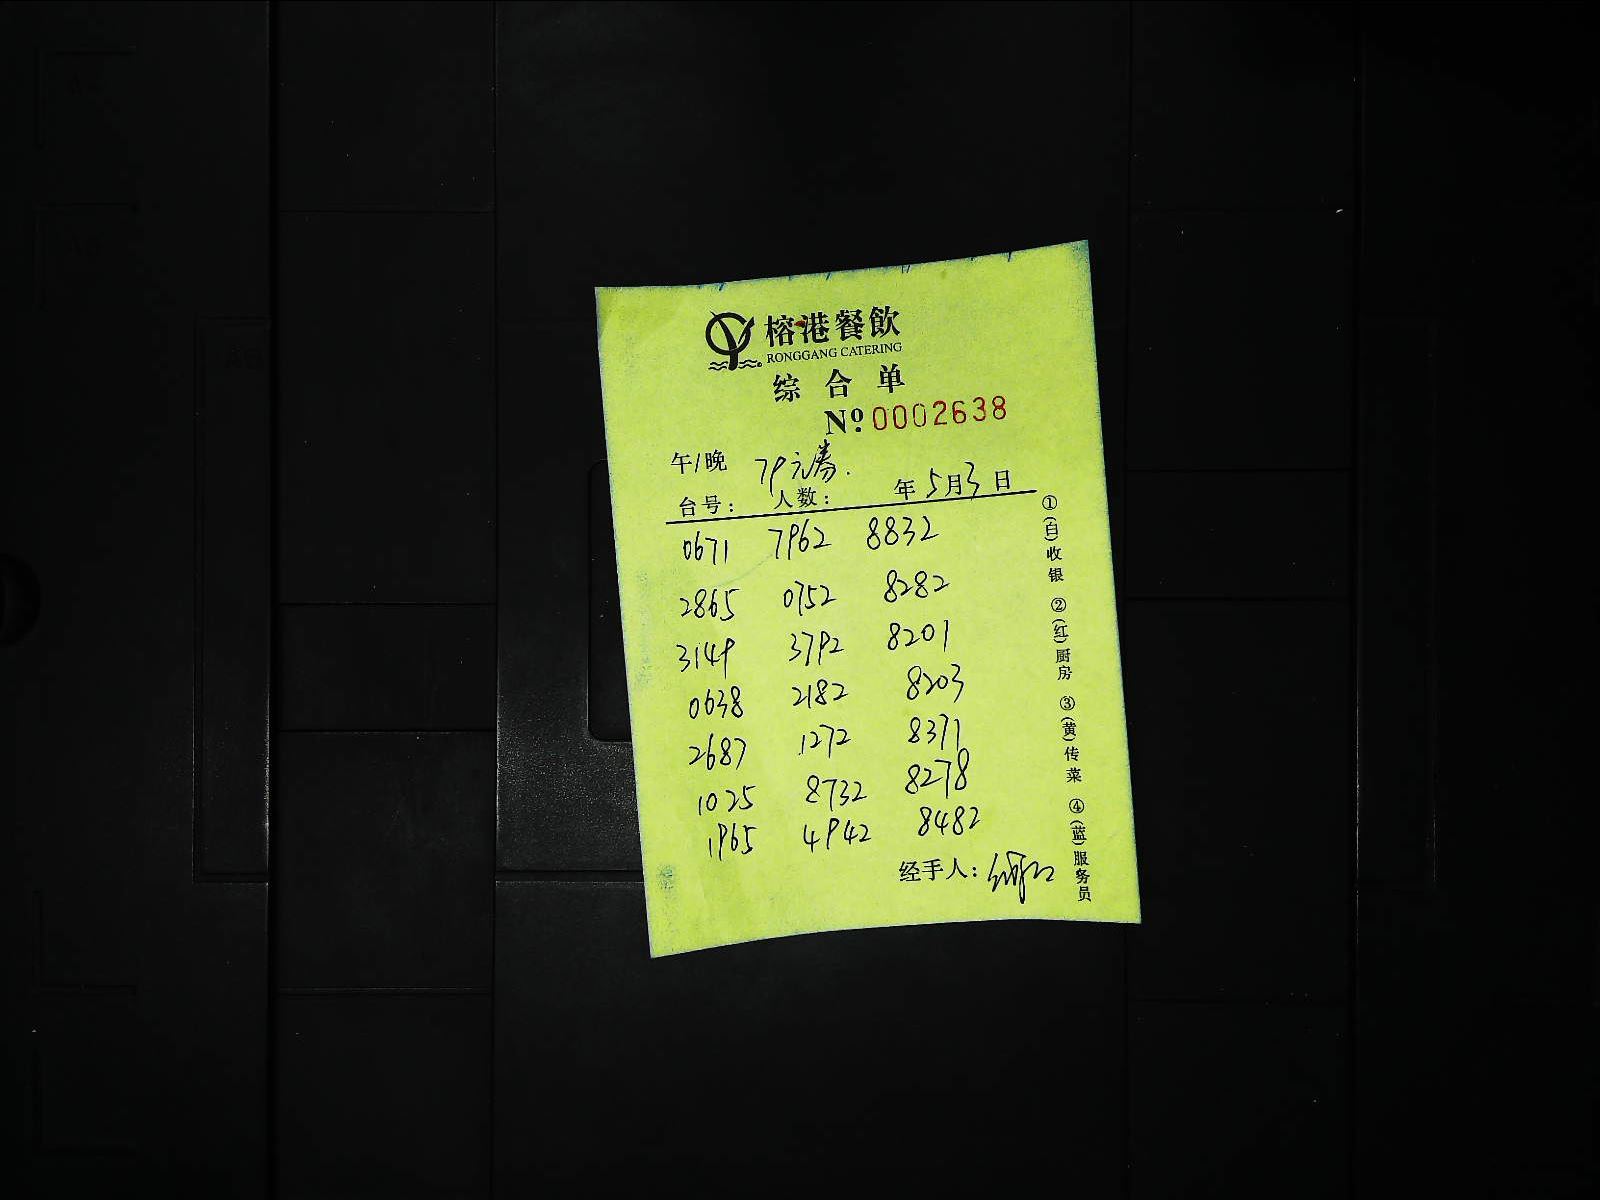 榕港餐飲
RONGGANG CATERING
综合单
Nº:0002638
午/晚 79元券.
台号: 人数: 年5月3日
0671 7962 8832
2865 0752 8282
3149 3792 8201
0638 2182 8203
2687 1272 8371
1025 8732 8278
1965 4942 8482
经手人:
①(白)收银 ②(红)厨房 ③(黄)传菜 ④(蓝)服务员